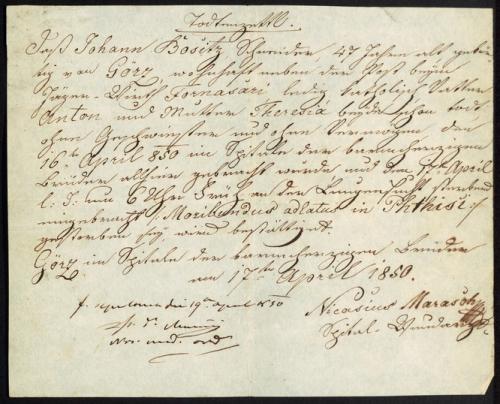 Todtenzettl.
Daß Johann Bositz Schneider, 47 Jahre alt gebür-
tig von Görz, wohnhaft neben der Post beym
Jäger-Wirth Fornasari ledig katholisch Vatter
Anton und Mutter Theresia beyde schon todt,
ohne Geschwister und ohne Vermögen, den
16ten April 850 im Spitale der barmherzigen
Brüder allhier gebracht wurde, und den 17ten April
l: J: um 6 Uhr Früh an der Lungensucht sterbend
eingebracht /: Moribundus adlatus in Phthisi :/
gestorben sey, wird bestättigt.
Görz im Spitale der barmherzigen Brüder
am 17ten April 1850.
Nicasius Marasch
Spital-Wundarzt
19 April 850